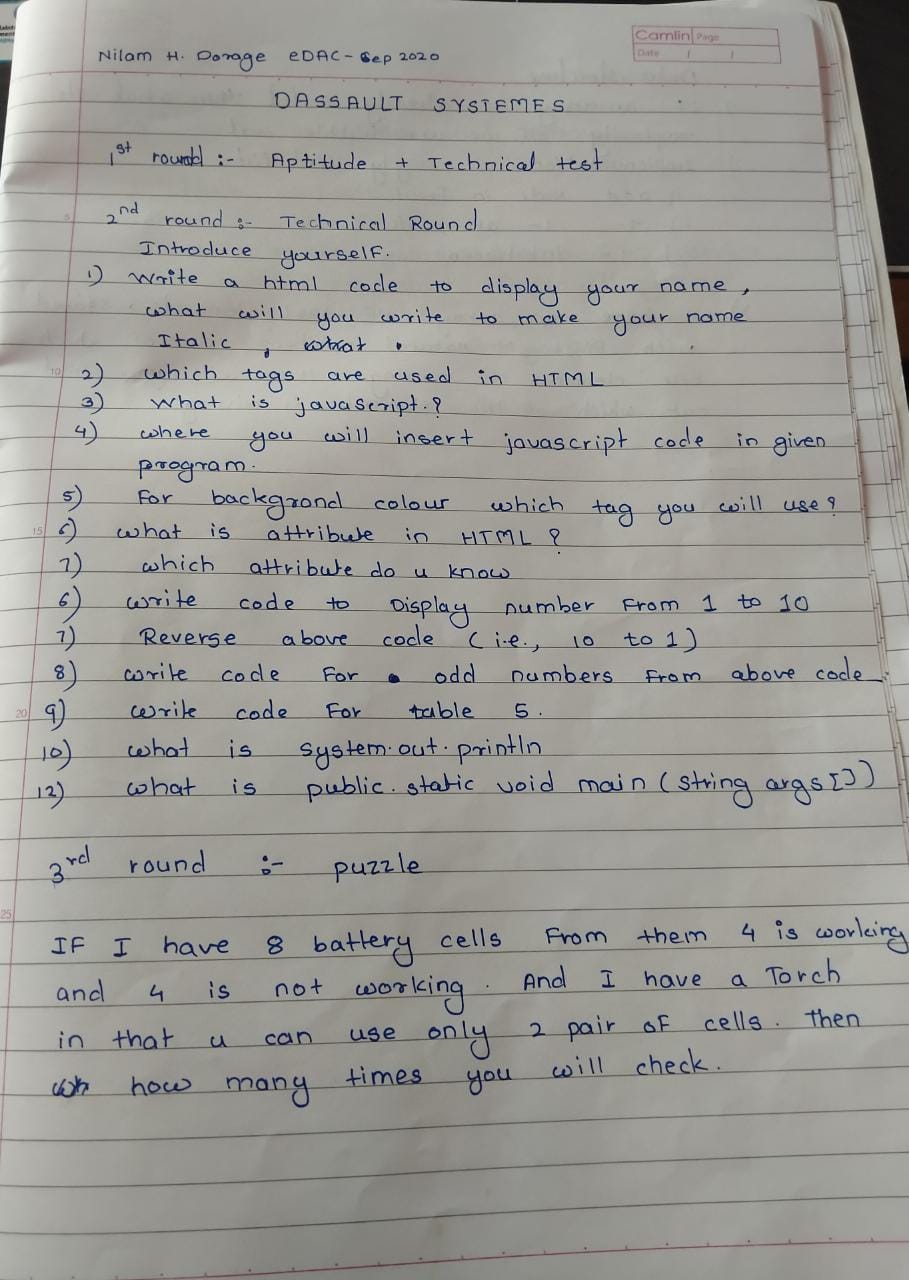 Camlin Page
Date / /
Nilam H. Dorage eDAC - Sep 2020
DASSAULT SYSTEMES
1st round :- Aptitude + Technical test
2nd round :- Technical Round
Introduce yourself.
1) Write a html code to display your name,
what will you write to make your name
Italic,
2) which tags are used in HTML
3) What is javascript.?
4) where you will insert javascript code in given
program.
5) For backgrond colour which tag you will use?
6) what is attribute in HTML ?
7) which attribute do u know
6) write code to Display number From 1 to 10
7) Reverse above code (i.e., 10 to 1)
8) write code For odd numbers From above code
9) write code For table 5.
10) what is system.out.println
12) what is public.static void main (string args[])
3rd round :- puzzle
IF I have 8 battery cells From them 4 is working
and 4 is not working. And I have a Torch
in that u can use only 2 pair of cells. Then
how many times you will check.
5
10
15
20
25